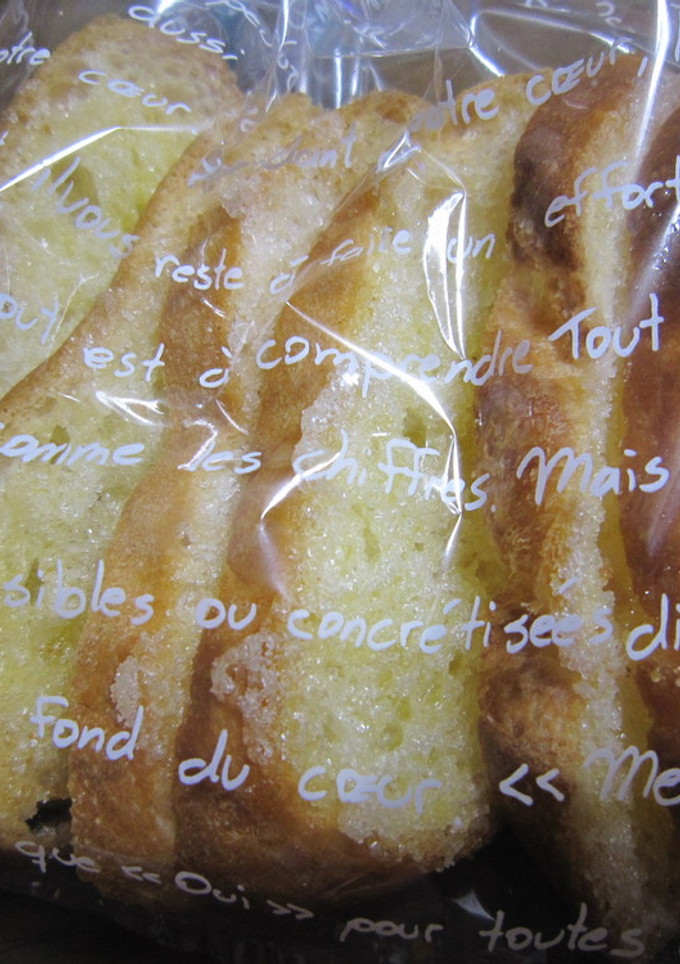 aussi
otre cœur
votre cœur,
vous reste à faire un effort
out est à comprendre Tout
omme les chiffres. Mais
sibles ou concrétisées di
fond du cœur. << Me
que << Oui >> pour toutes